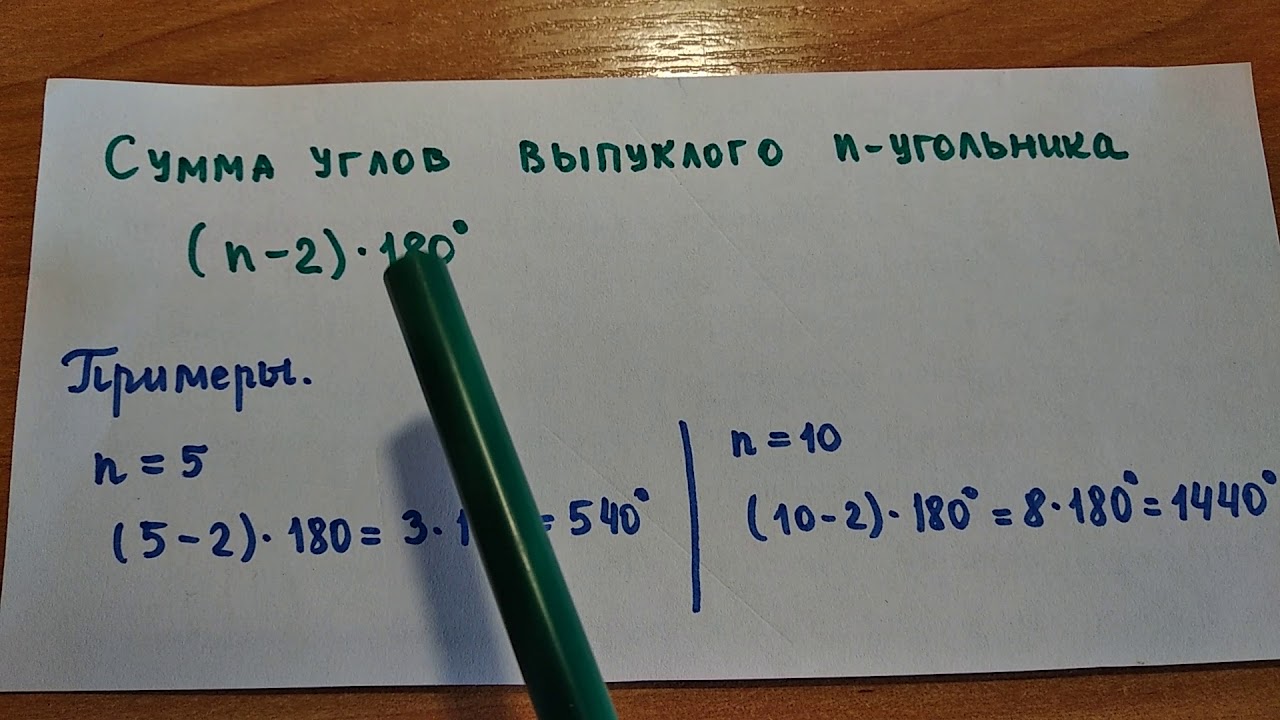 Сумма углов выпуклого n-угольника
(n-2)·180°
Примеры.
n = 5
(5-2)·180 = 3·1 = 540°
n = 10
(10-2)·180° = 8·180° = 1440°